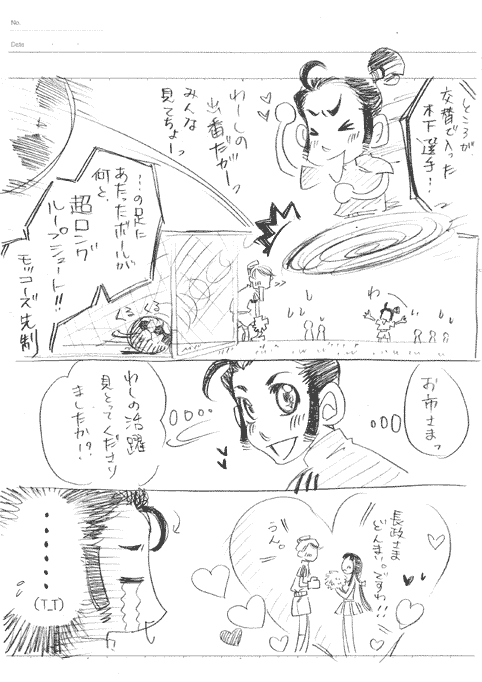 No.
Date
ところが
交替で入った
木下選手…
わーしの
出番だがーっ
みんな
見てちょーっ
…の足に
あたったボールが
何と
超ロング
ループシュート!!
モッコーズ先制
くる
くる
わー
お市さまっ
わしの活躍
見とってくださり
ましたか!?
長政さま
どんまい。ですわ!!
うん。
……
(T_T)